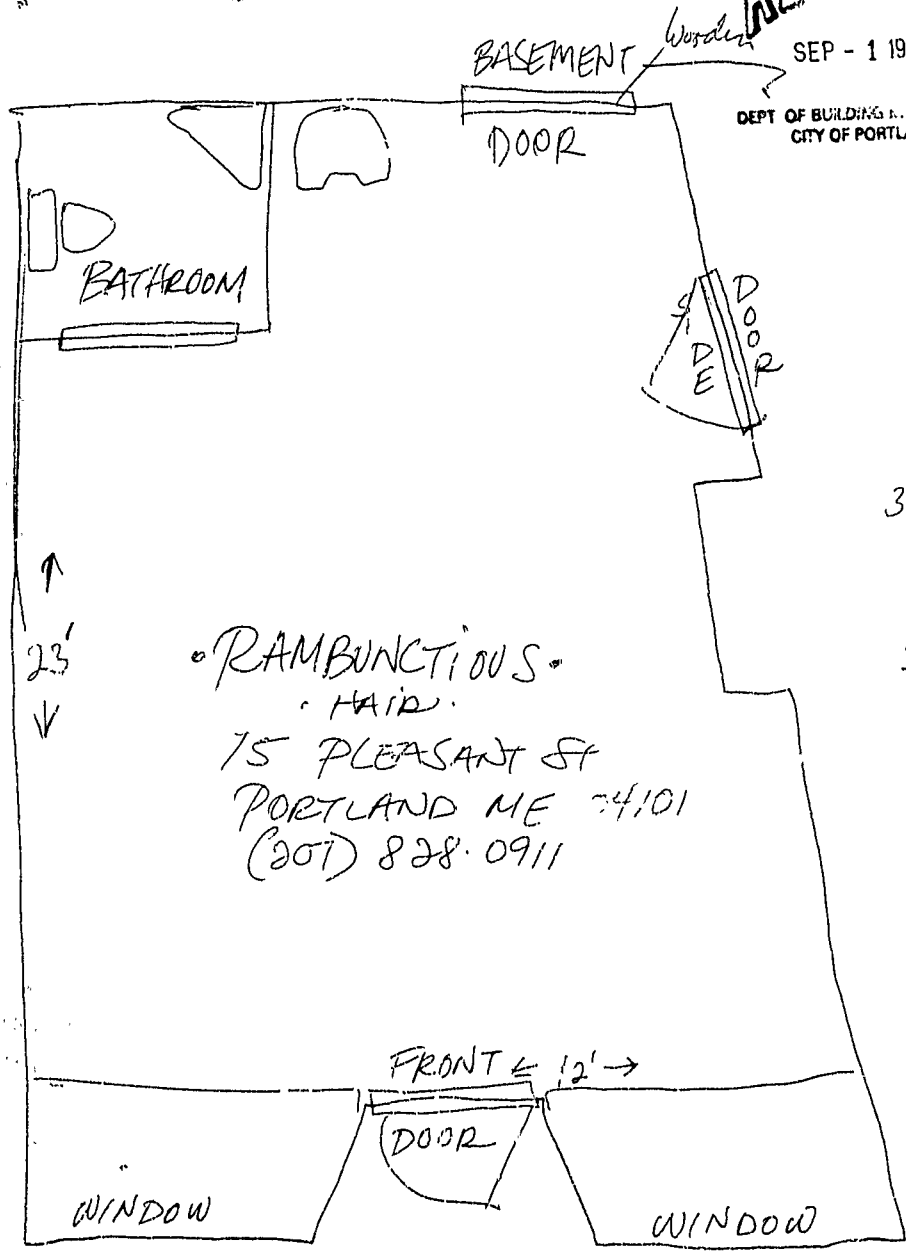 BASEMENT
Wooden
SEP - 1 19
DEPT OF BUILDING
CITY OF PORTLA
DOOR
BATHROOM
SIDE
DOOR
3
23'
• RAMBUNCTIOUS •
• HAIR •
75 PLEASANT St
PORTLAND ME 04101
(207) 828-0911
FRONT ← 12' →
DOOR
WINDOW
WINDOW